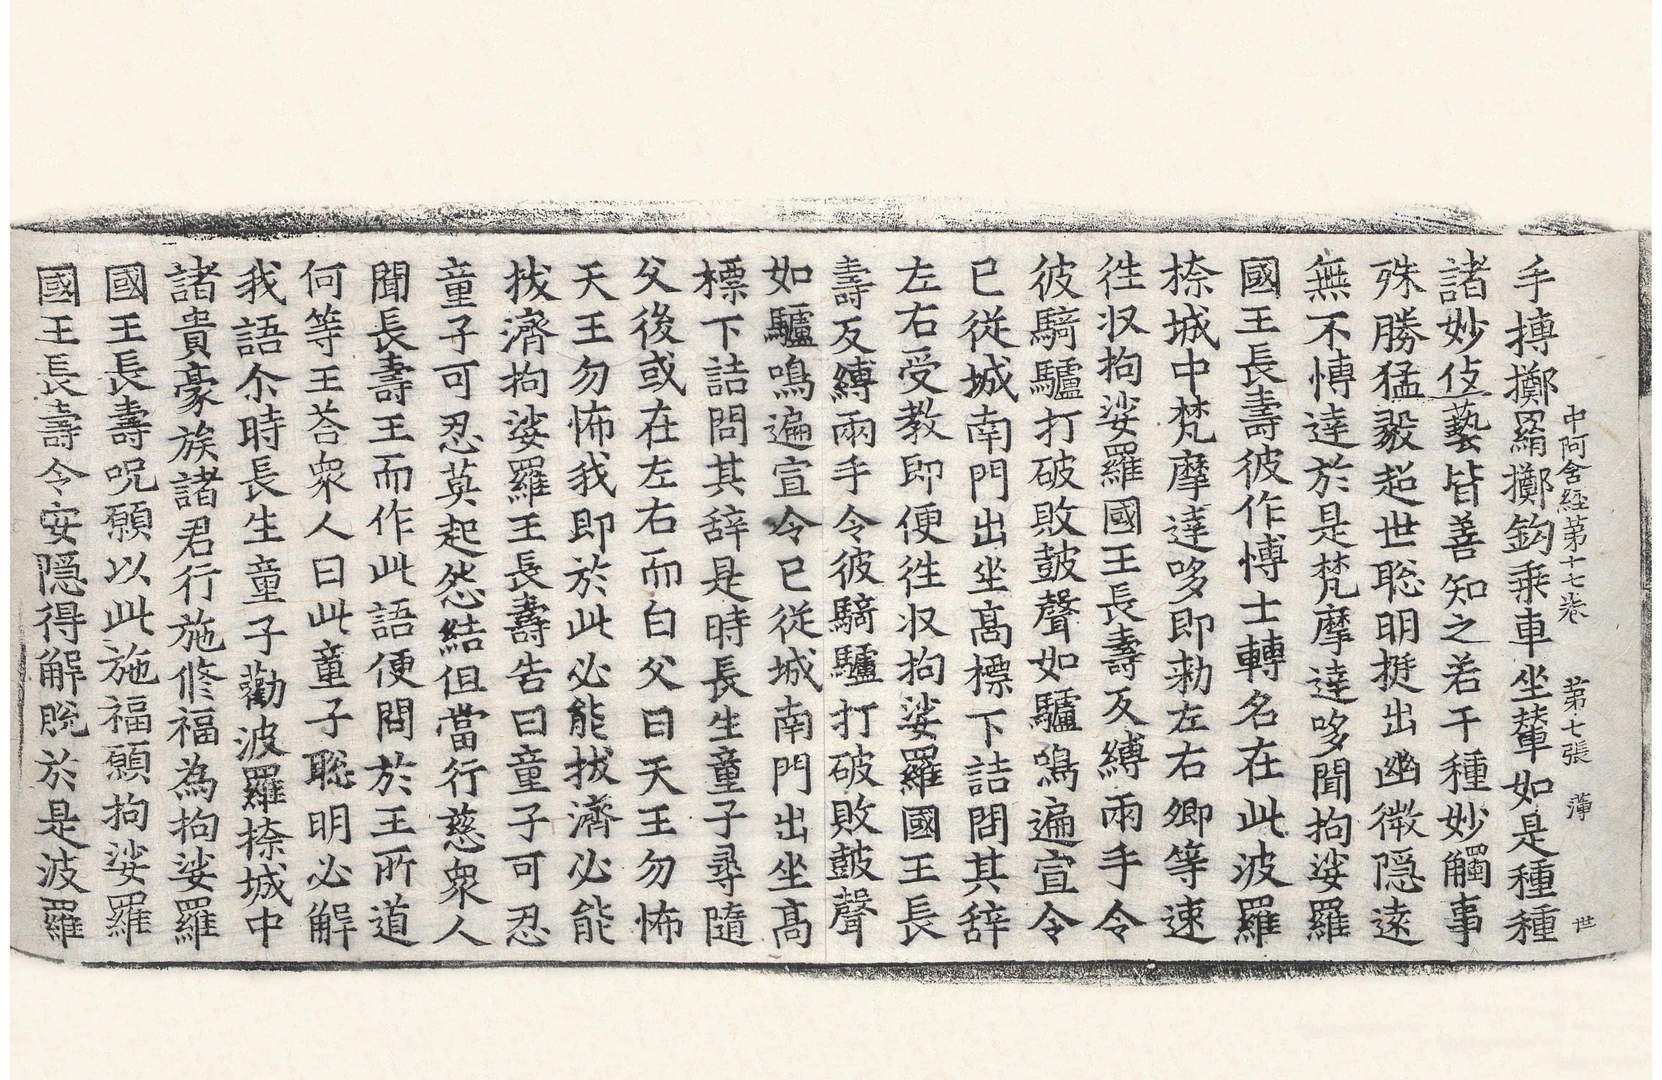 中阿含經第十七卷 第七張 薄 世
手摶擲羂擲鈎乗車坐輦如是種種
諸妙伎藝皆善知之若干種妙觸事
殊勝猛毅超世聡明挺出幽微隠遠
無不愽達於是梵摩達哆聞拘娑羅
國王長壽彼作愽士轉名在此波羅
㮈城中梵摩達哆即勑左右卿等速
徃収拘娑羅國王長壽反縛兩手令
彼騎驢打破敗鼓聲如驢鳴遍宣令
已從城南門出坐高標下詰問其辞
左右受教即便徃収拘娑羅國王長
壽反縛兩手令彼騎驢打破敗鼓聲
如驢鳴遍宣令已從城南門出坐高
標下詰問其辞是時長生童子尋隨
父後或在左右而白父曰天王勿怖
天王勿怖我即於此必能拔濟必能
拔濟拘娑羅王長壽告曰童子可忍
童子可忍莫起怨結但當行慈衆人
聞長壽王而作此語便問於王所道
何等王荅衆人曰此童子聡明必解
我語尒時長生童子勸波羅㮈城中
諸貴豪族諸君行施修福為拘娑羅
國王長壽呪願以此施福願拘娑羅
國王長壽令安隠得解脱於是波羅